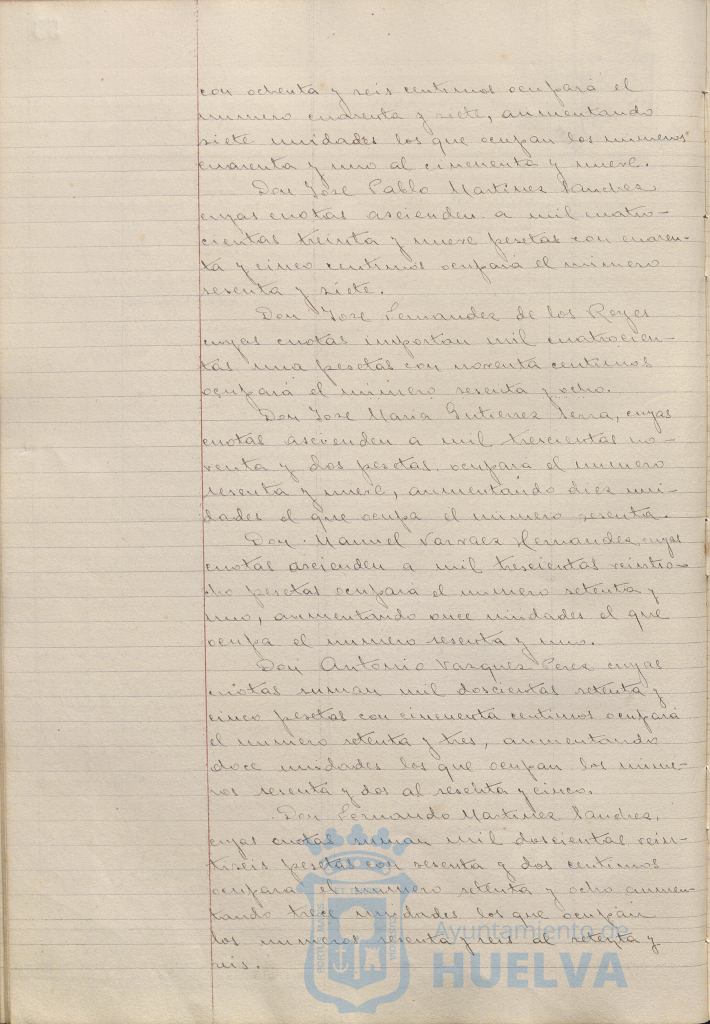 con ochenta y seis centimos ocupará el
numero cuarenta y siete, aumentando
siete unidades los que ocupan los numeros
cuarenta y uno al cincuenta y nueve.
Don José Pablo Martinez Sanchez
cuyas cuotas ascienden a mil cuatro-
cientas treinta y nueve pesetas con cuaren-
ta y cinco centimos ocupará el numero
sesenta y siete.
Don José Fernandez de los Reyes
cuyas cuotas importan mil cuatrocien-
tas una pesetas con noventa centimos
ocupará el numero sesenta y ocho.
Don José Maria Gutierrez Serra, cuyas
cuotas ascienden a mil trescientas no-
venta y dos pesetas. ocupara el numero
sesenta y nueve, aumentando diez uni-
dades el que ocupa el numero sesenta.
Don Manuel Narvaez Hernandez, cuyas
cuotas ascienden a mil trescientas veintio-
cho pesetas ocupará el numero setenta y
uno, aumentando once unidades el que
ocupa el numero sesenta y uno.
Don Antonio Vazquez Perez cuyas
cuotas suman mil doscientas setenta y
cinco pesetas con cincuenta centimos ocupará
el numero setenta y tres, aumentando
doce unidades los que ocupan los nume-
ros sesenta y dos al sesenta y cinco.
Don Fernando Martinez Sanchez,
cuyas cuotas suman mil doscientas vein-
tiseis pesetas con sesenta y dos centimos
ocupara el numero setenta y ocho aumen-
tando trece unidades los que ocupan
los numeros sesenta y seis al setenta y
seis.
Ayuntamiento de
HUELVA